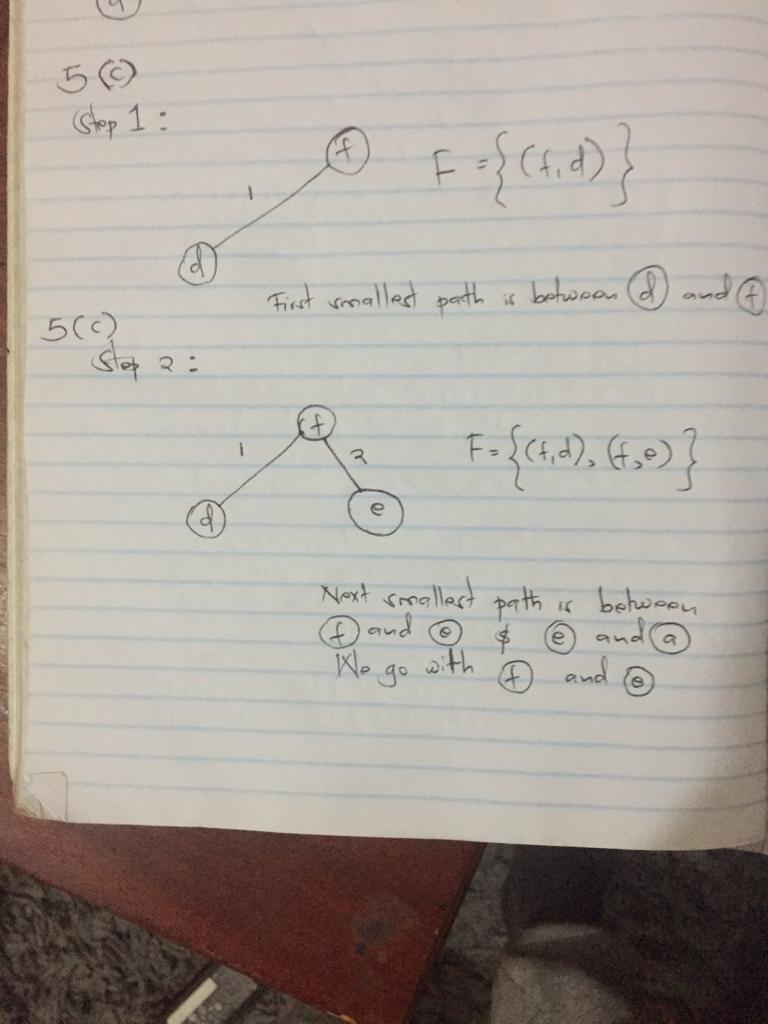 a
5(c)
Step 1:
f
1
d
F = {(f,d)}
First smallest path is between d and f
5(c)
Step 2:
f
1
2
d
e
F = {(f,d), (f,e)}
Next smallest path is between
f and e & e and a
We go with f and e